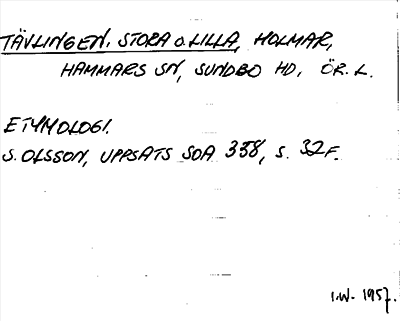 TÄVLINGEN. STORA O. LILLA, HOLMAR,
HAMMARS SN, SUNDBO HD, ÖR. L.
ETYMOLOGI.
S. OLSSON, UPPSATS SOA 338, S. 32F.
I.W. 1957.